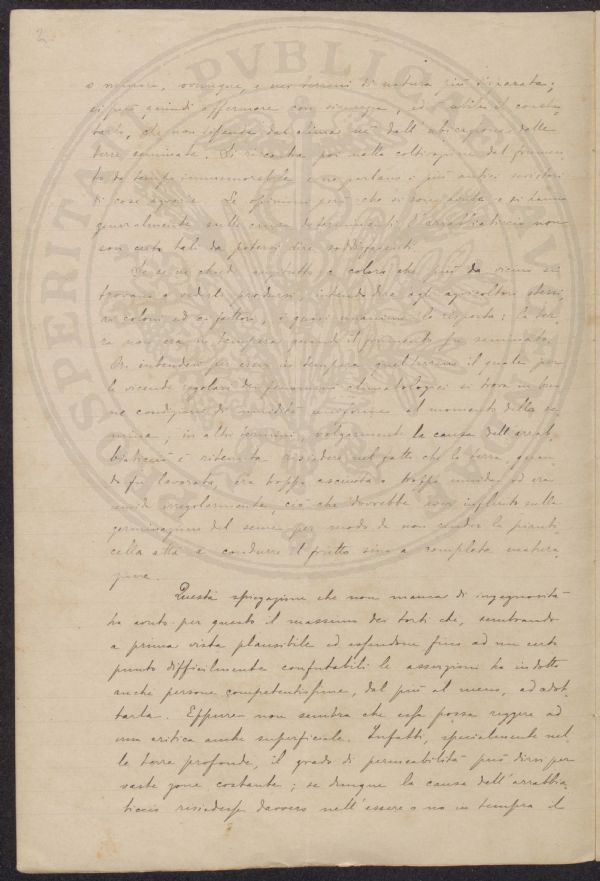 2
o minore, ovunque, e nei terreni di natura più disparata;
si può quindi affermare con sicurezza, ed è utile il consta-
tarlo, che non dipende dal clima nè dall'ubicazione delle
terre seminate. Si riscontra poi nella coltivazione del frumen-
to da tempo immemorabile e ne parlano i più antichi scrittori
di cose agrarie. Le opinioni però che si sono avute e si hanno
generalmente sulle cause determinanti l'arrabbiaticcio non
son certo tali da potersi dire soddisfacenti.
Se se ne chiede anzitutto a coloro che più da vicino si
trovano a vederlo prodursi, intendo dire agli agricoltori stessi,
ai coloni ed ai fattori, è quasi unanime la risposta: la ter-
ra non era in tempera quando il frumento fu seminato.
Or intendesi per essere in tempera quel terreno il quale per
le vicende regolari dei fenomeni climatologici si trova in buo-
ne condizioni di umidità uniforme al momento della se-
mina; in altri termini, volgarmente la causa dell'arrab-
biaticcio è ritenuta risiedere nel fatto che la terra, quan-
do fu lavorata, era troppo asciutta o troppo umida od era
umida irregolarmente, ciò che dovrebbe aver influito sulla
germinazione del seme per modo da non render la pianti-
cella atta a condurre il frutto sino a completa matura-
zione.
Questa spiegazione che non manca di ingegnosità
ha avuto per questo il massimo dei torti che, sembrando
a prima vista plausibile ed essendone fino ad un certo
punto difficilmente confutabili le asserzioni ha indotto
anche persone competentissime, dal più al meno, ad adot-
tarla. Eppure non sembra che essa possa reggere ad
una critica anche superficiale. Infatti, specialmente nel-
le terre profonde, il grado di permeabilità può dirsi per
vaste zone costante; se dunque la causa dell'arrabbia-
ticcio risiedesse davvero nell'essere o no in tempra il